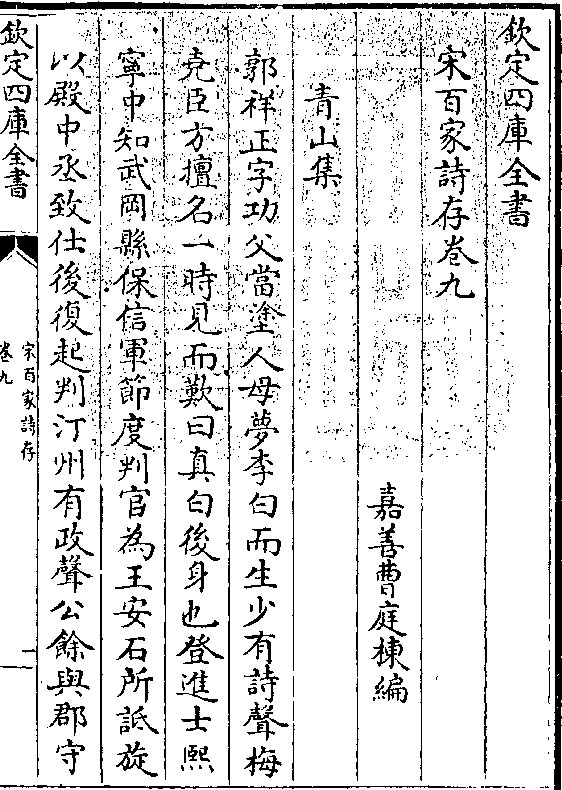 欽定四庫全書
宋百家詩存卷九
嘉善曹庭棟編
青山集
郭祥正字功父當塗人母夢李白而生少有詩聲梅
堯臣方擅名一時見而歎曰真白後身也登進士熙
寧中知武岡縣保信軍節度判官為王安石所詆旋
以殿中丞致仕後復起判汀州有政聲公餘與郡守
欽定四庫全書
宋百家詩存
卷九
一